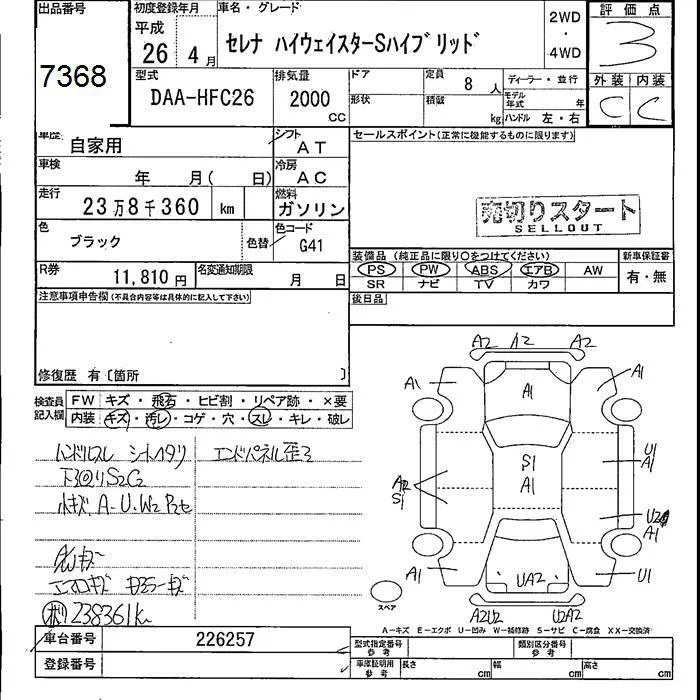 出品番号
7368
初度登録年月
平成
26 4月
車名・グレード
セレナ ハイウェイスターSハイブリッド
2WD
・
4WD
評価点
3
型式
DAA-HFC26
排気量
2000
CC
ドア
形状
定員
8 人
積載
kg
ディーラー・並行
モデル
年式 年
ハンドル 左・右
外装 内装
C C
車歴 自家用
シフト
AT
車検
年 月( 日)
冷房
AC
走行
23万8千360 km
燃料
ガソリン
色
ブラック
色替
色コード
G41
R券 11,810円
名変通知期限
月 日
セールスポイント(正常に機能するものに限ります)
売切りスタート
SELLOUT
装備品 (純正品に限り○をつけてください)
PS PW ABS エアB AW
SR ナビ TV カワ
新車保証書
有・無
後日品
注意事項申告欄(不具合内容等は具体的に記入して下さい)
修復歴 有〔箇所 〕
検査員
記入欄
FW キズ・飛石・ヒビ割・リペア跡・×要
内装 キズ・汚レ・コゲ・穴・スレ・キレ・破レ
ハンドルスレ シートヘタリ
下回りS2C2
小キズ A-U.W2 P2セ
AWキズ
エアロキズ
238361km
エンドパネル歪ミ
A2 A2 A2
A1 A1 A1
U1
A1
S1
A1
A2
S1
U2
A1
A1 UA2 U1
A2U2 U2A2
スペア
A-キズ E-エクボ U-凹み W-補修跡 S-サビ C-腐食 XX-交換済
車台番号 226257
登録番号
型式指定番号
参考
類別区分番号
参考
車庫証明用
参考
長さ cm 幅 cm 高さ cm